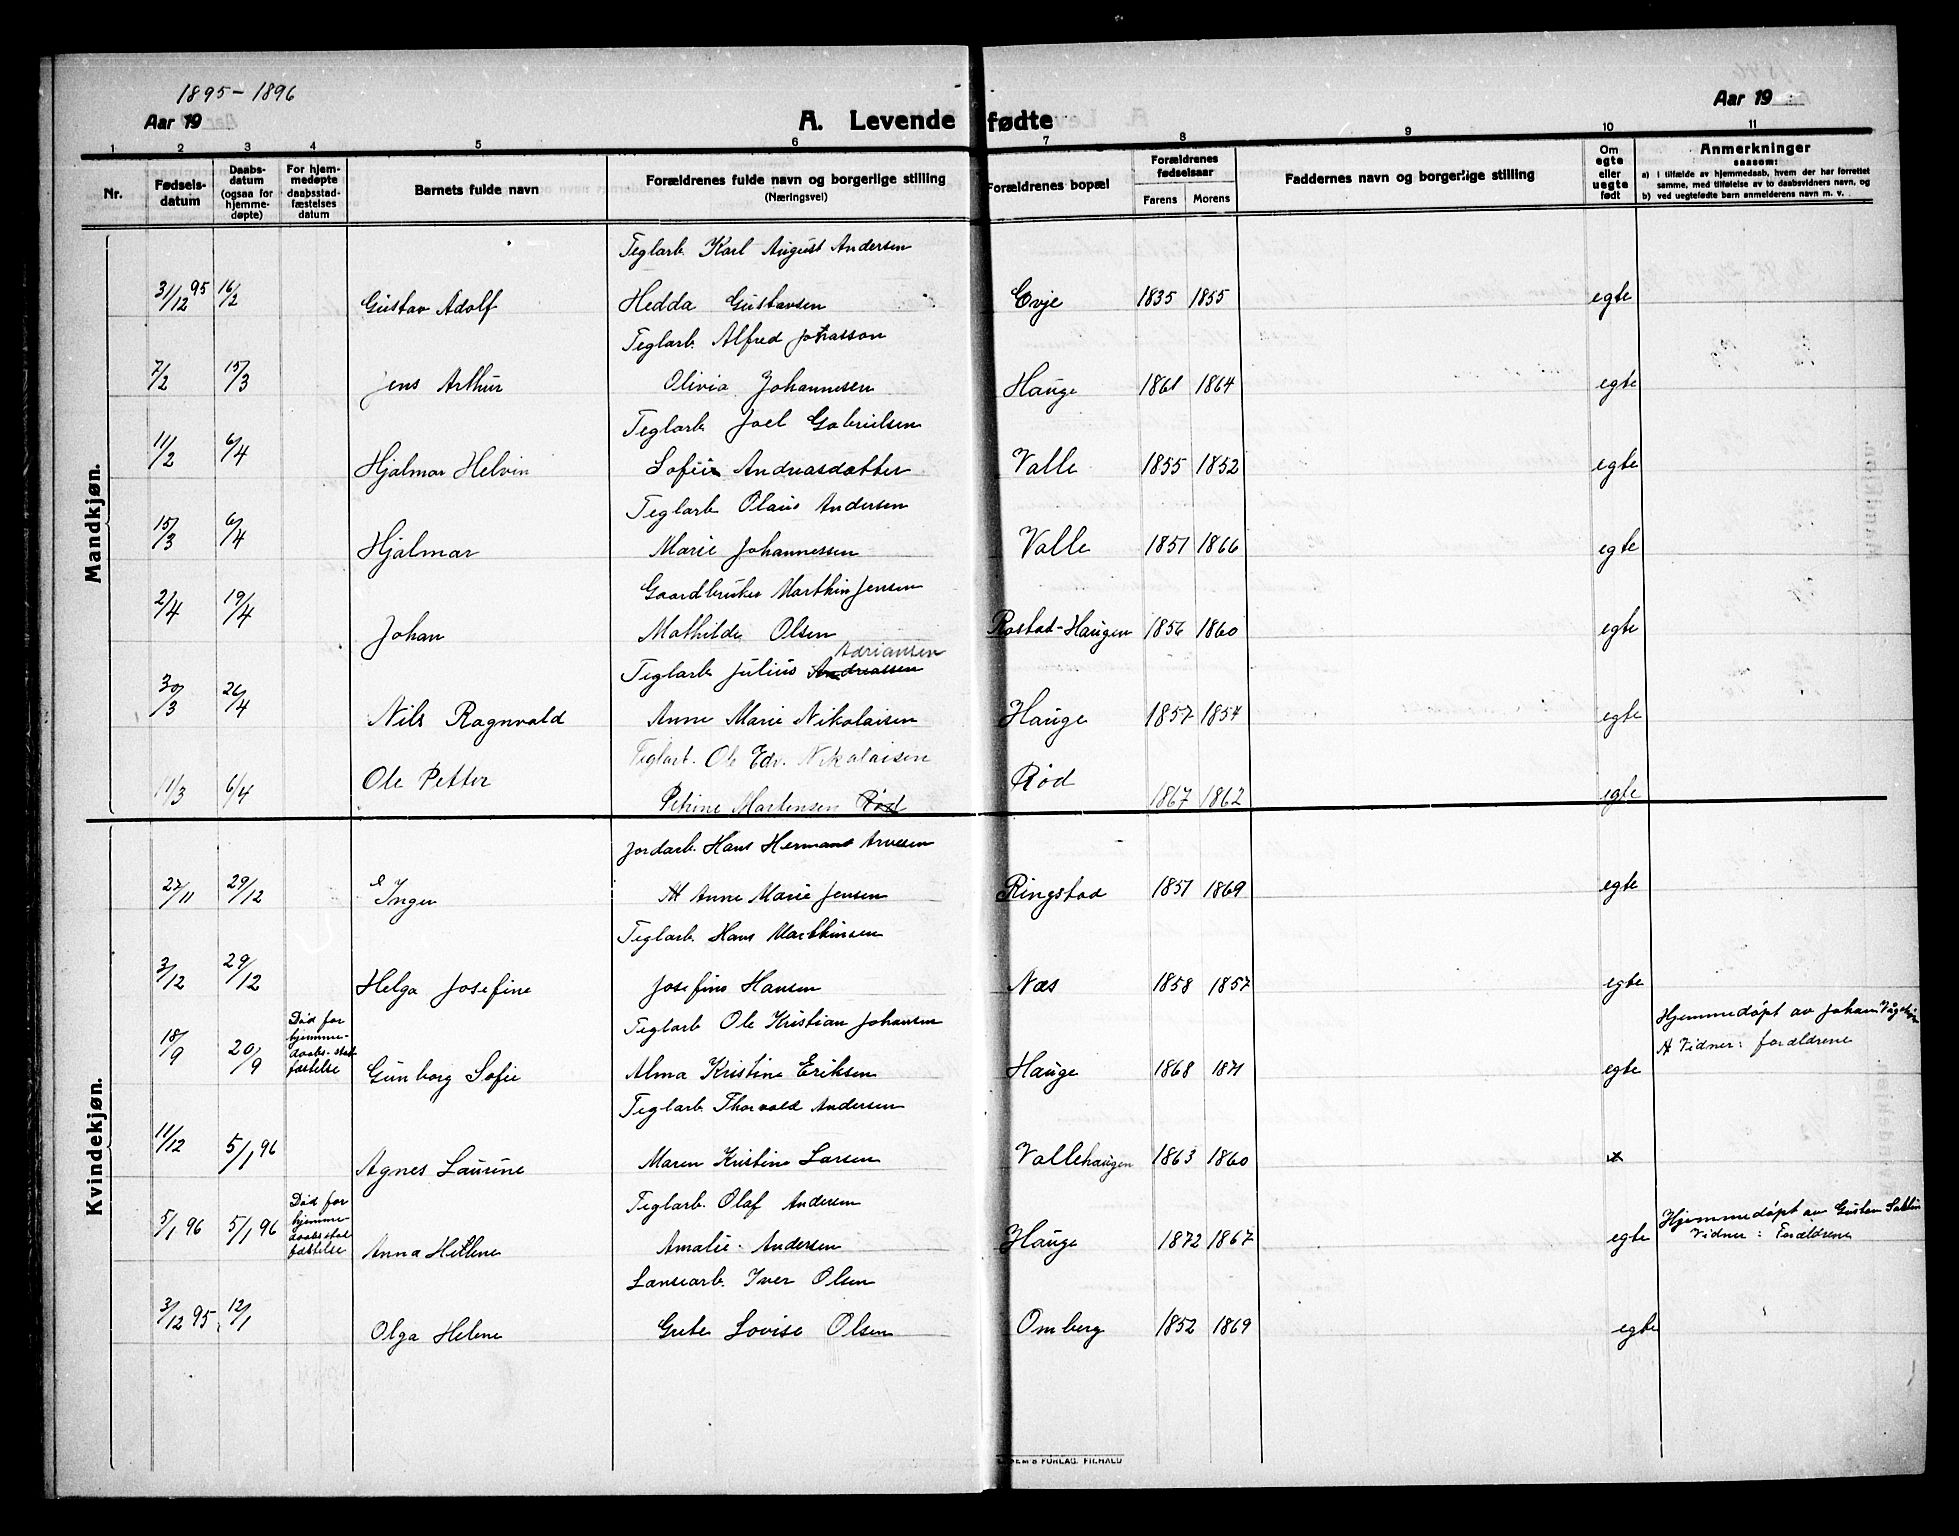 1895-1896
Aar 19
A. Levende fødte
Aar 19
1 2 3 4 5 6 7 8 9 10 11
Nr.
Fødsels-
datum
Daabs-
datum
(ogsaa for
hjemme-
døpte)
For hjem-
medøpte
daabsstad-
fæstelses
datum
Barnets fulde navn
Forældrenes fulde navn og borgerlige stilling
(Næringsvei)
Forældrenes bopæl
Forældrenes
fødselsaar
Farens Morens
Faddernes navn og borgerlige stilling
Om
egte
eller
uegte
født
Anmerkninger
saasom:
a) i tilfælde av hjemmedaab, hvem der har forrettet
samme, med tilføielse av to daabsvidners navn, og
b) ved uegtefødte barn anmelderens navn m. v.
Mandkjøn.
Teglarb. Karl August Andersen
31/12 95 16/2 Gustav Adolf Hedda Gustavsen Evje 1835 1855 egte
Teglarb. Alfred
7/2 15/3 Jens Arthur Olivia Johannesen Hauge 1861 1864 egte
Teglarb. Joel Gabrielsen
11/2 6/4 Hjalmar Helvin Sofie Andreasdatter Valle 1855 1852 egte
Teglarb Olaus Andersen
15/3 6/4 Hjalmar Marie Johannessen Valle 1851 1866 egte
Gaardbruker Marthin Jensen
2/4 19/4 Johan Mathilde Olsen Rostad-Haugen 1856 1860 egte
Adriansen
Teglarb Julius Andreassen
30/3 26/4 Nils Ragnvald Anne Marie Nikolaisen Hauge 1857 1854 egte
Teglarb. Ole Edv. Nikolaisen
11/3 6/4 Ole Petter Petrine Martensen Rød Rød 1867 1862 egte
Kvindekjøn.
Jordarb. Hans Hermans Arvesen
27/11 29/12 Inger Anne Marie Jensen Ringstad 1851 1869 egte
Teglarb. Hans Marthinsen
3/12 29/12 Helga Josefine Josefine Hansen Næs 1858 1857 egte
Teglarb Ole Kristian Johansen Hjemmedøpt av Johan
18/9 20/9 Død før hjemme-daabs-stadfæstelse Gunborg Sofie Alma Kristine Eriksen Hauge 1868 1871 egte Vidner: forældrene
Teglarb. Thorvald Andersen
11/12 5/1 96 Agnes Laurine Maren Kristine Larsen Vallehaugen 1863 1860
Teglarb. Olaf Andersen Hjemmedøpt av Gustav
5/1 96 5/1 96 Død før hjemme daabsstadfæstelse Anna Helene Amalie Andersen Hauge 1872 1867 egte Vidner: Forældrene
Iver Olsen
3/12 95 12/1 Olga Helene Grete Lovise Olsen Omberg 1852 1869 egte
FORLAG, FR.HALD